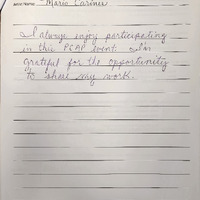 Mario Carines
I always enjoy participating
in this PCAP event. I'm
grateful for the opportunity
to share my work.